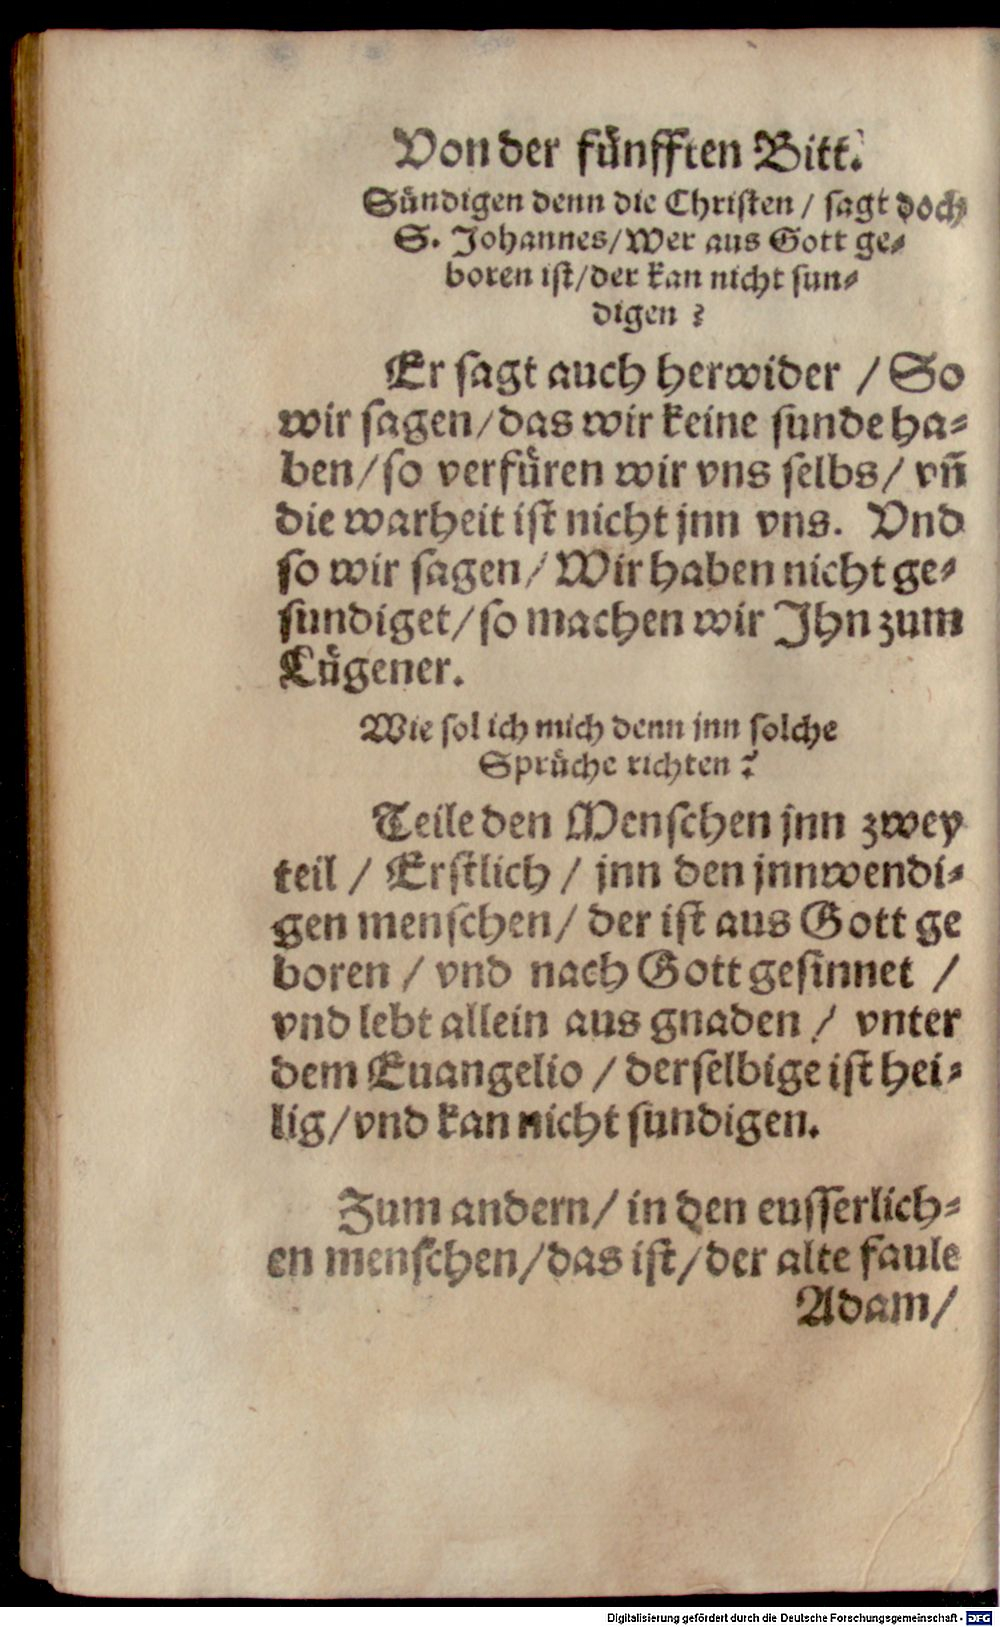 Von der fuͤnfften Bitt.
Suͤndigen denn die Christen / sagt doch
S. Johannes/Wer aus Gott ge⸗
boren ist/der kan nicht sun⸗
digen ?
Er sagt auch herwider / So
wir sagen/das wir keine sunde ha⸗
ben/so verfuͤren wir vns selbs/ vn̄
die warheit ist nicht jnn vns. Vnd
so wir sagen/ Wir haben nicht ge⸗
sundiget/so machen wir Jhn zum
Luͤgener.
Wie sol ich mich denn jnn solche
Spruͤche richten ?
Teile den Menschen jnn zwey
teil / Erstlich / jnn den jnnwendi⸗
gen menschen/ der ist aus Gott ge
boren / vnd nach Gott gesinnet /
vnd lebt allein aus gnaden / vnter
dem Euangelio / derselbige ist hei⸗
lig/vnd kan nicht sundigen.
Zum andern/ in den eusserlich⸗
en menschen/das ist/der alte faule
Adam/
Digitalisierung gefördert durch die Deutsche Forschungsgemeinschaft - DFG